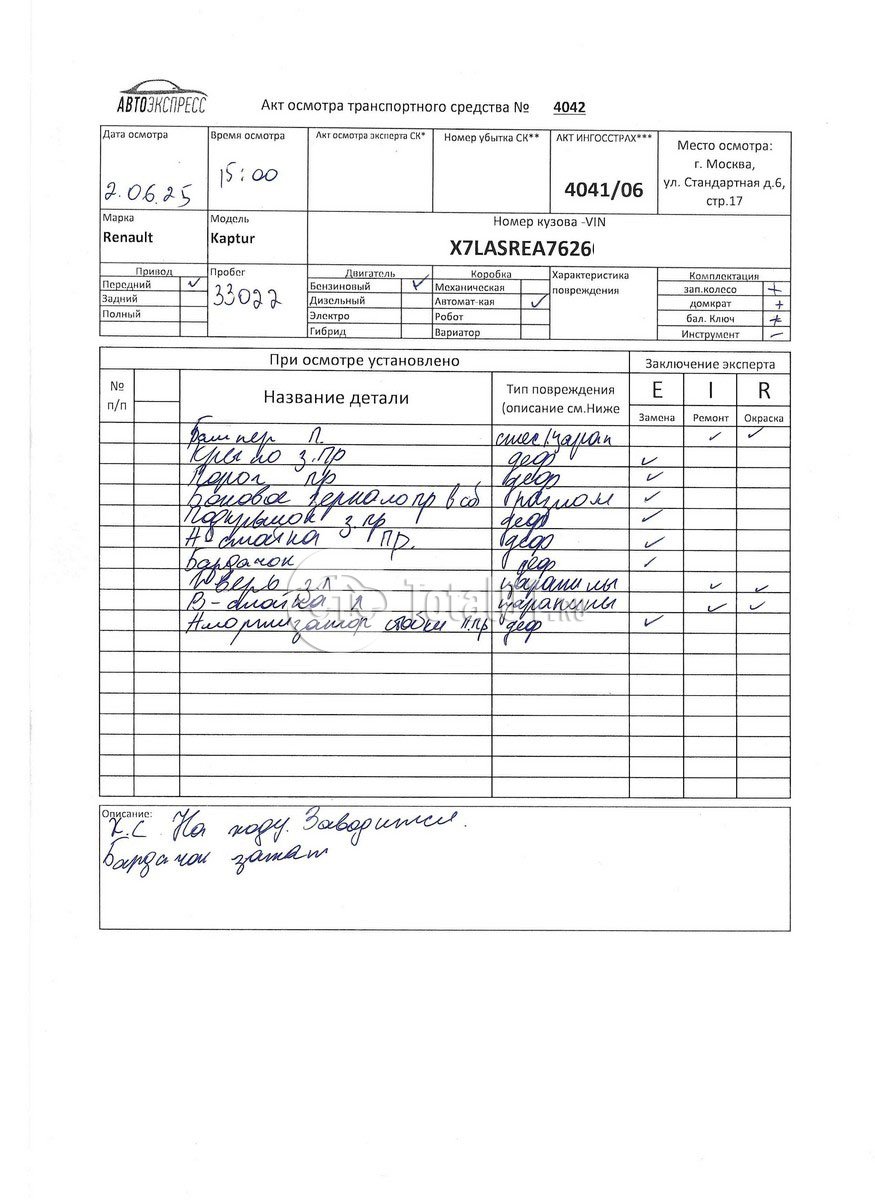 АВТОЭКСПРЕСС
Акт осмотра транспортного средства № 4042
Дата осмотра
2.06.25
Время осмотра
15:00
Акт осмотра эксперта СК*
Номер убытка СК**
АКТ ИНГОССТРАХ***
4041/06
Место осмотра:
г. Москва,
ул. Стандартная д.6,
стр.17
Марка
Renault
Модель
Kaptur
Номер кузова -VIN
X7LASREA7626
Привод
Передний ✓
Задний
Полный
Пробег
33022
Двигатель
Бензиновый ✓
Дизельный
Электро
Гибрид
Коробка
Механическая
Автомат-кая ✓
Робот
Вариатор
Характеристика
повреждения
Комплектация
зап.колесо +
домкрат +
бал. Ключ +
Инструмент –
При осмотре установлено
Заключение эксперта
№
п/п
Название детали
Тип повреждения
(описание см.Ниже
E I R
Замена Ремонт Окраска
Бампер П. смес/царап ✓ ✓
Крыло з.пр деф ✓
Порог пр деф ✓
Боковое зеркало пр в сб разлом ✓
Подкрылок з.пр деф ✓
А-стойка пр. деф ✓
Бардачок деф ✓
Дверь з.л царапины ✓ ✓
В-стойка л царапины ✓ ✓
Амортизатор стойки п.пр деф ✓
Total
.RU
Описание:
К.С На ходу. Заводится.
Бардачок зажат